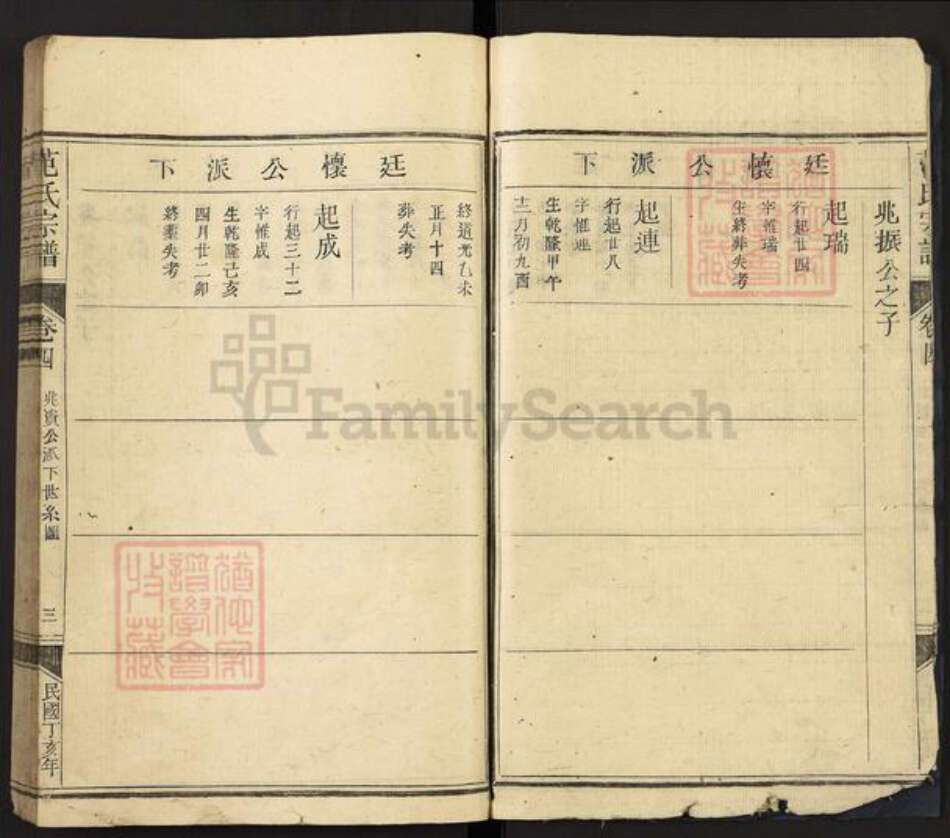 兆振公之子
廷懷公派下
起瑞
行起廿四
字惟瑞
生終葬失考
起連
行起廿八
字惟連
生乾隆甲午
十二月初九酉
廷懷公派下
終道光乙未
正月十四
葬失考
起成
行起三十二
字惟成
生乾隆己亥
四月廿二卯
終葬失考
范氏宗譜
卷四
兆貴公派下世系圖
三
民國丁亥年
FamilySearch